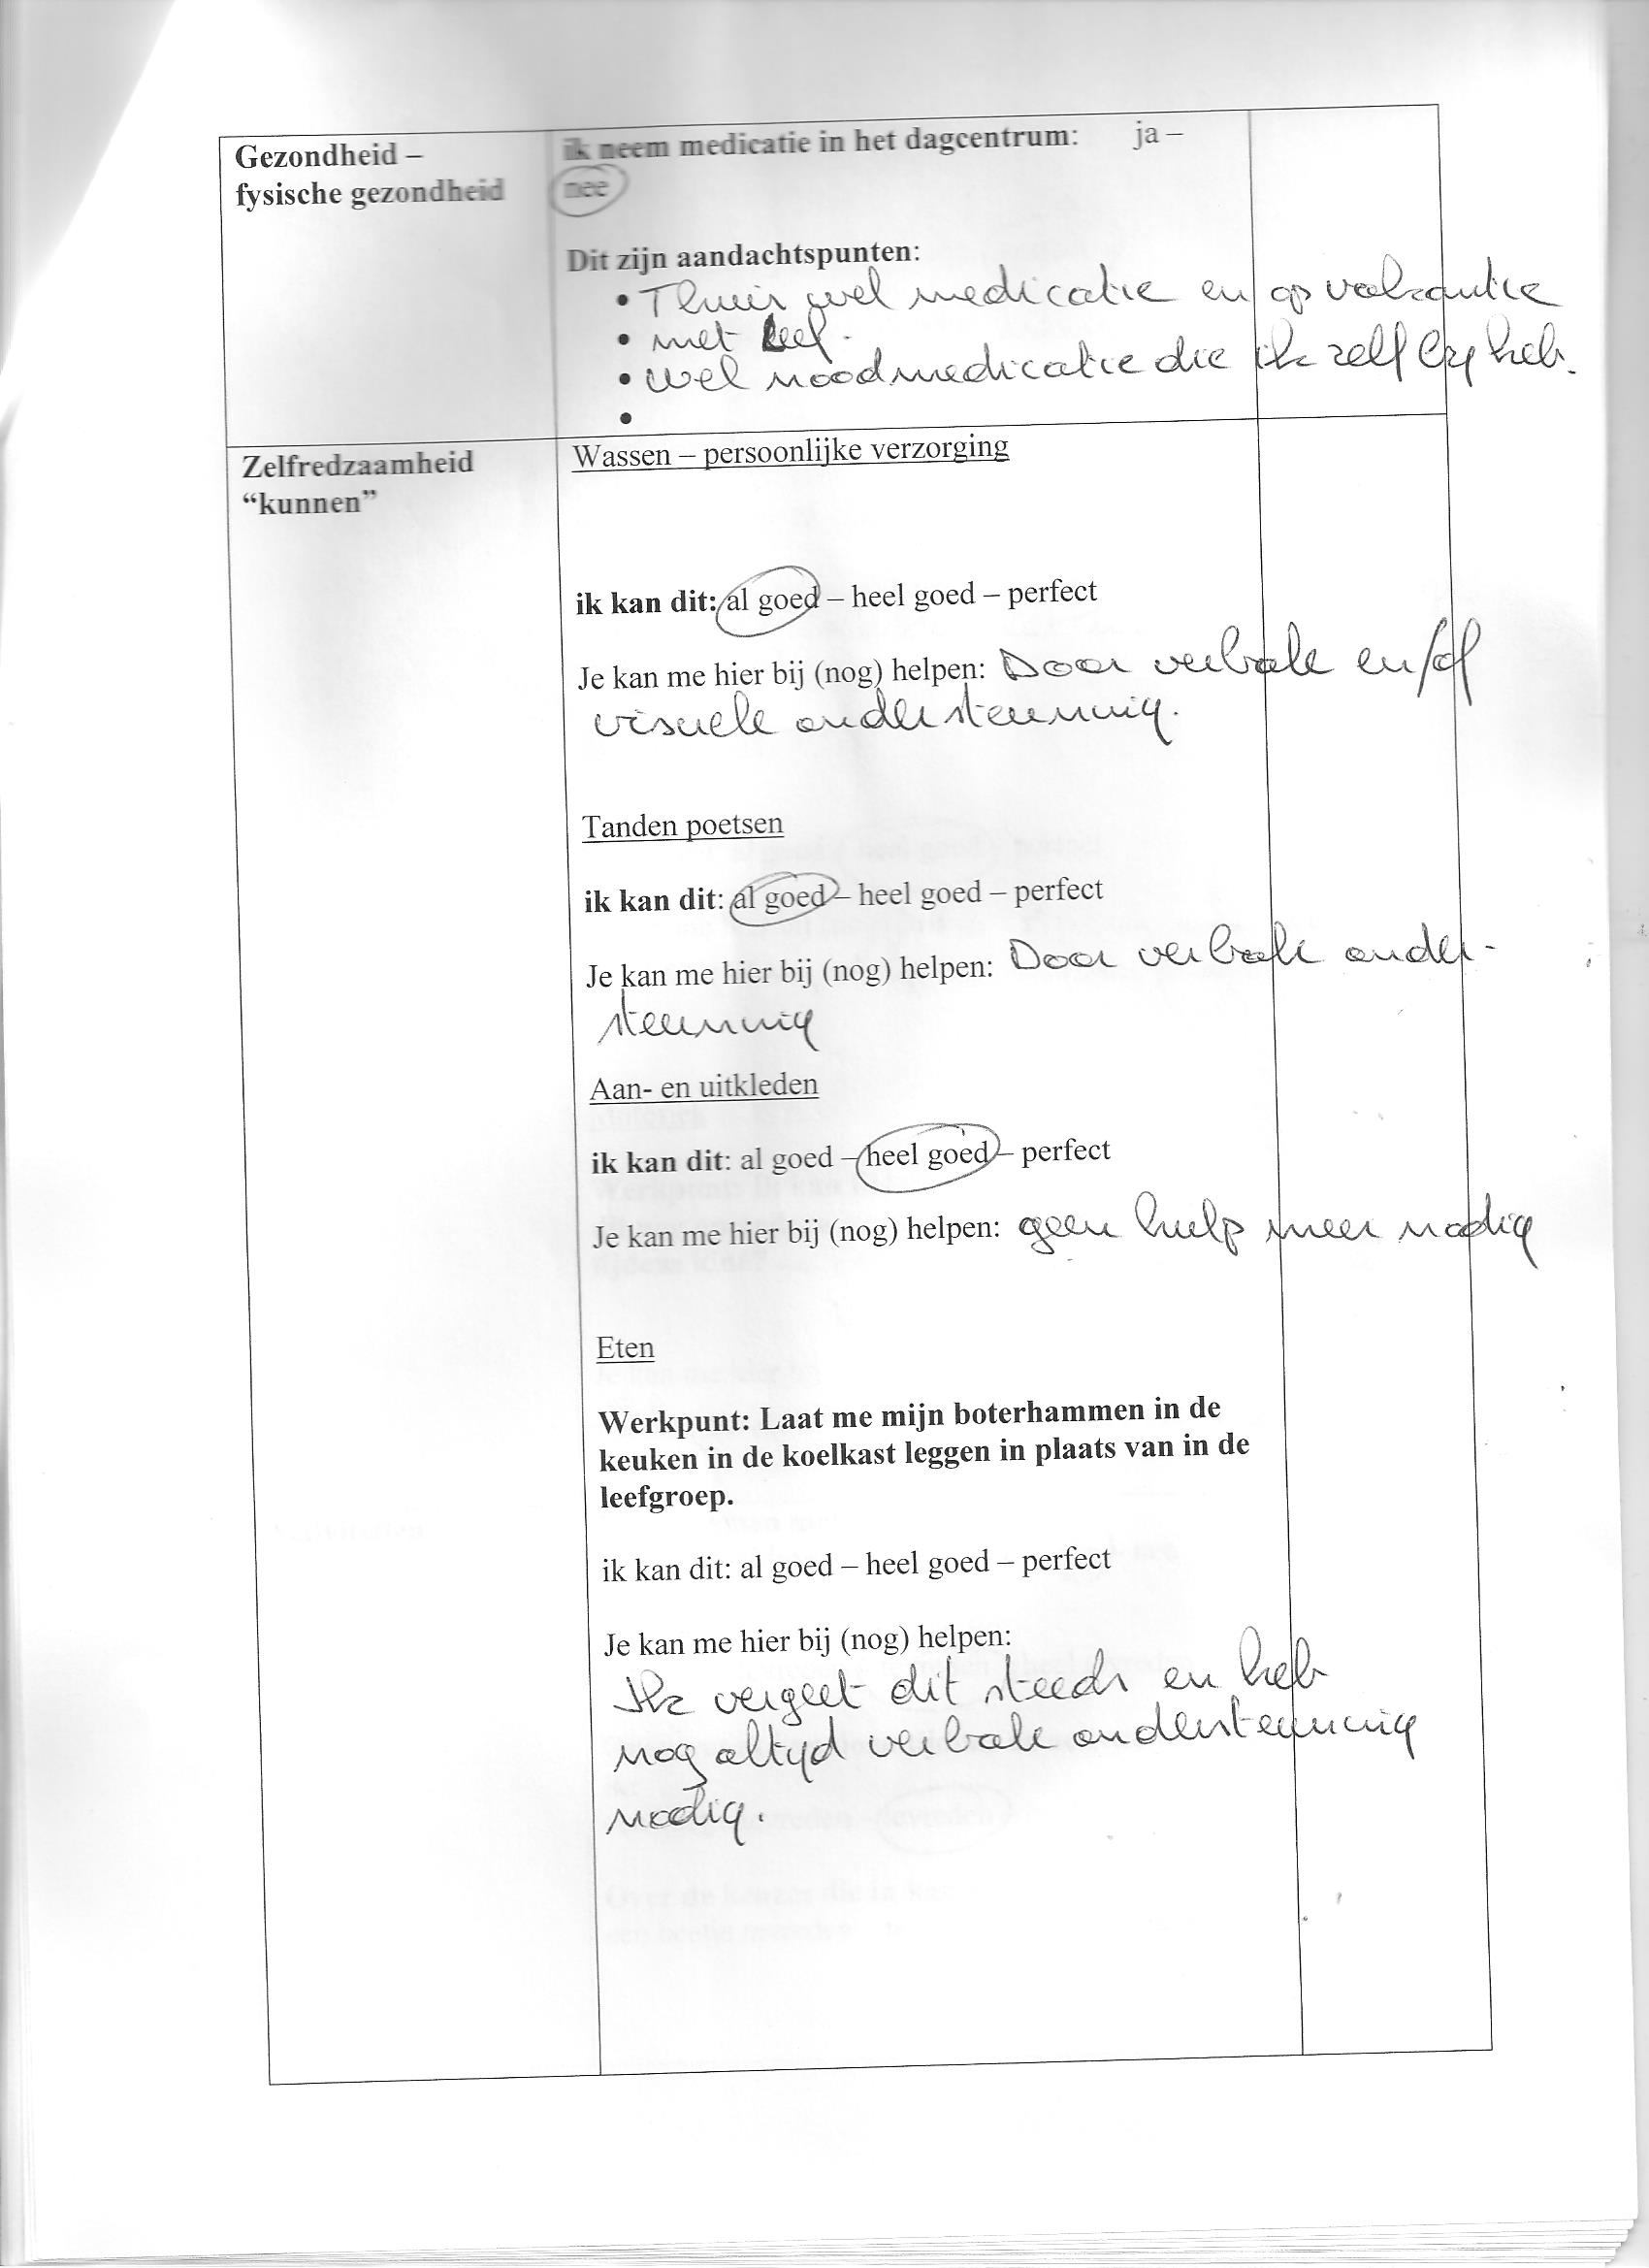 Gezondheid –
fysische gezondheid
ik neem medicatie in het dagcentrum: ja –
nee
Dit zijn aandachtspunten:
• Thuis wel medicatie en op vakantie
• met
• wel noodmedicatie die ik zelf bij heb.
•
Zelfredzaamheid
“kunnen”
Wassen – persoonlijke verzorging
ik kan dit: al goed – heel goed – perfect
Je kan me hier bij (nog) helpen: Door verbale en/of
visuele ondersteuning.
Tanden poetsen
ik kan dit: al goed – heel goed – perfect
Je kan me hier bij (nog) helpen: Door verbale onder-
steuning
Aan- en uitkleden
ik kan dit: al goed – heel goed – perfect
Je kan me hier bij (nog) helpen: geen hulp meer nodig
Eten
Werkpunt: Laat me mijn boterhammen in de
keuken in de koelkast leggen in plaats van in de
leefgroep.
ik kan dit: al goed – heel goed – perfect
Je kan me hier bij (nog) helpen:
Ik vergeet dit steeds en heb
nog altijd verbale ondersteuning
nodig.